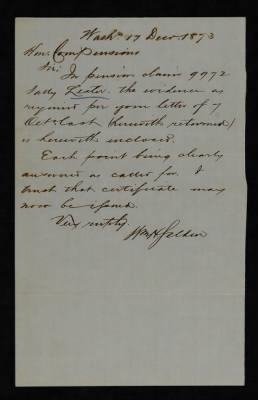 Washn 17 Decr 1873
Hon. Com Pensions
Sir;
In pension claim 9972
Sally Lester, the evidence as
required per your letter of 7
Oct last (herewith returned)
is herewith enclosed.
Each point being clearly
answered as called for. I
trust that certificate may
now be issued.
Very rectfly.
Wm H